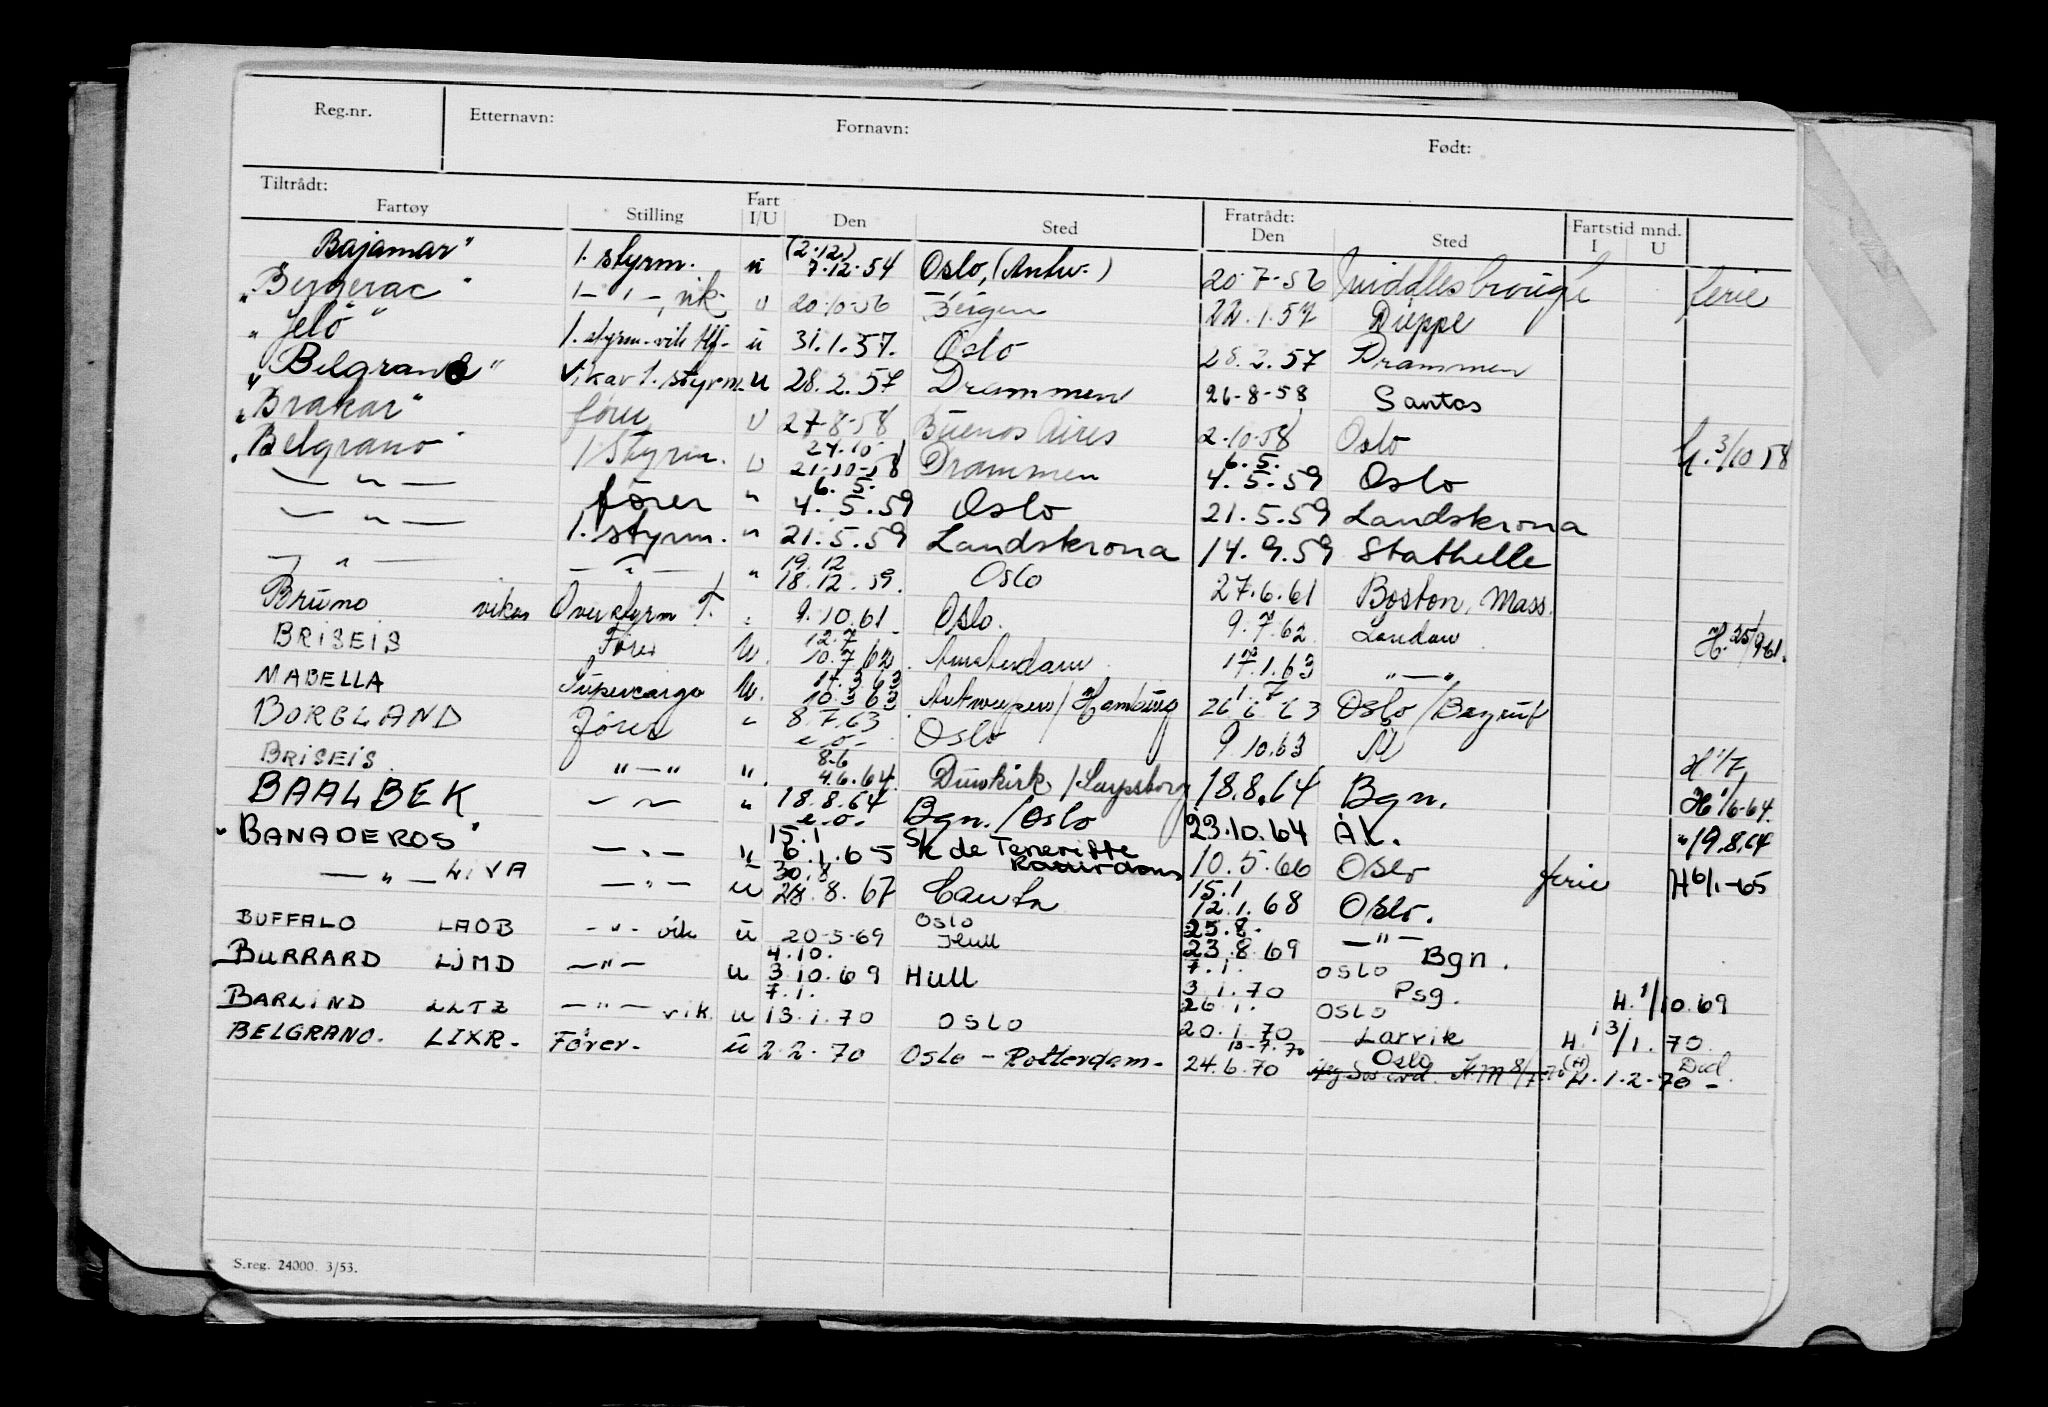 Reg.nr. Etternavn: Fornavn: Født:
Tiltrådt: Fratrådt: Fartstid mnd.
Fartøy Stilling Fart I/U Den Sted Den Sted I U
"Bajamar" 1. styrm. u (2.12) 7.12.54 Oslo, (Antw.) 20.7.56 Middlesbrough ferie
"Bergerac" 1 — " —, vik. u 20.10.56 Bergen 22.1.57 Dieppe
"Jelö" 1. styrm. vik u 31.1.57. Oslo 28.2.57 Drammen
"Belgrano" Vikar 1. styrm. u 28.2.57 Drammen 26-8-58 Santos
"Brakar" fører u 27-8-58 Buenos Aires 2-10-58 Oslo H. 3/10 58
"Belgrano" 1 styrm. u 24.10 21-10-58 Drammen 6.5. 4.5.59 Oslo
— " — fører " 6.5. 4.5.59 Oslo 21.5.59 Landskrona
— " — 1. styrm. " 21.5.59 Landskrona 14.9.59 Stathelle
— " — — " — " 19.12 18.12.59. Oslo 27.6.61 Boston, Mass.
Bruno vikar Overstyrm T. " 9.10.61 Oslo. 9.7.62 London H. 25/9-61.
BRISEIS Fører U. 12.7 10.7.62. Amsterdam 17.1.63 " — "
MABELLA Supercargo U. 11.3.63 10.3.63 Antwerpen/Hamburg 1.7 26.6.63 Oslo/Beyrut
BORGLAND fører " 8.7.63 e.o. Oslo 9.10.63 Å
BRISEIS. " — " ". 8-6 4.6.64. Dunkirk/Sarpsborg 18.8.64 Bgn. H 1/7
BAALBEK — " — " 18.8.64 e.o. Bgn./Oslo 23.10.64 Ak. H 1/6-64.
"BANADEROS" — " — " 15.1 6.1.65 Sk de Teneriffe 10.5.66 Oslo ferie "19.8.64
— " — LIVA — " — u 30.8 28.8.67 15.1 12.1.68 Oslo. H 6/1-65
BUFFALO LAOB — " — vik u 20-5-69 Oslo Hull 25.8. 23.8.69 — " — Bgn.
BURRARD LJMD — " — u 4.10. 3.10.69 Hull 7.1. 3.1.70 OSLO Psg. H. 1/10.69
BARLIND LLTZ — " — vik. u 7.1. 13.1.70 OSLO 26.1. 20.1.70 OSLO Larvik H. 13/1.70
BELGRANO. LIXR. Fører. u 2.2.70 Oslo - Rotterdam - 10-7.70 24.6.70 Oslo H.M 8/7-70 (H) H.1.2-70 -
S.reg. 24000. 3/53.